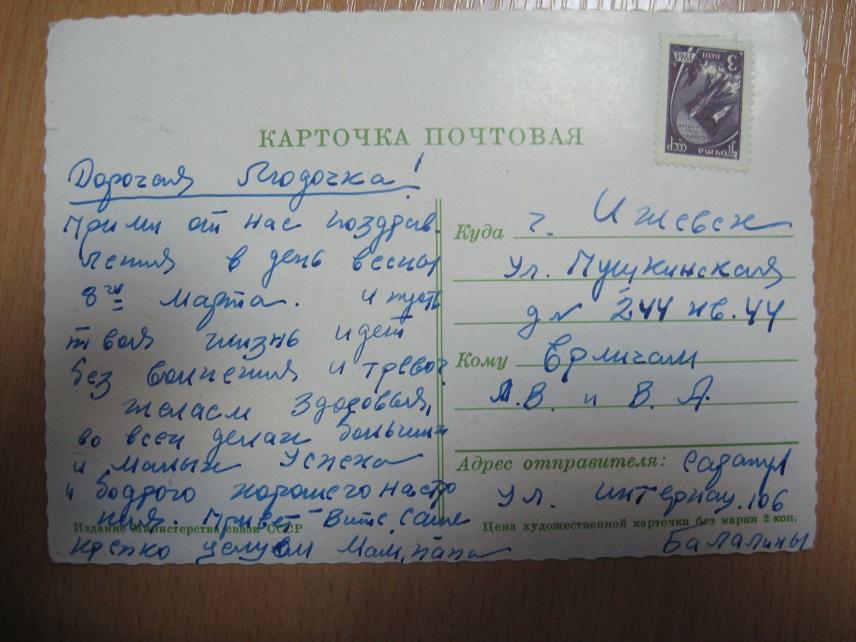 КАРТОЧКА ПОЧТОВАЯ
Дорогая Людочка!
Прими от нас поздрав-
ления в день весны
8ги марта. и пусть
твоя жизнь идет
без волнения и тревог
желаем здоровья,
во всех делах больших
и малых успеха
и бодрого хорошего настро
ния. Привет Вите, Саше
Крепко целуем Мам, папа
Издание Министерства связи СССР
3 КОП
1961
ПОЧТА СССР
Куда г. Ижевск
ул. Пушкинская
д № 244 кв. 44
Кому
Л.В. и В. А.
Адрес отправителя: Сарапул
ул. интернац. 106
Цена художественной карточки без марки 2 коп.
Балалины